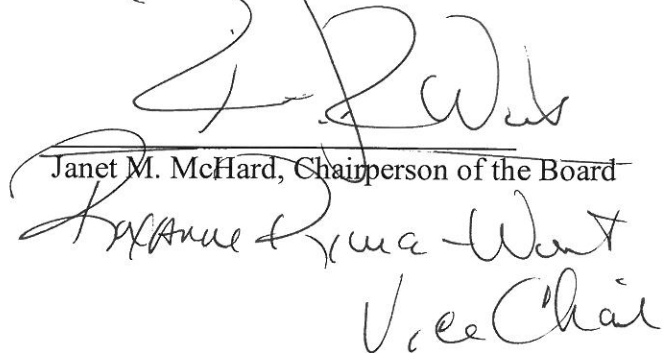 Janet M. McHard, Chairperson of the Board
Roxanne
Vice Chair